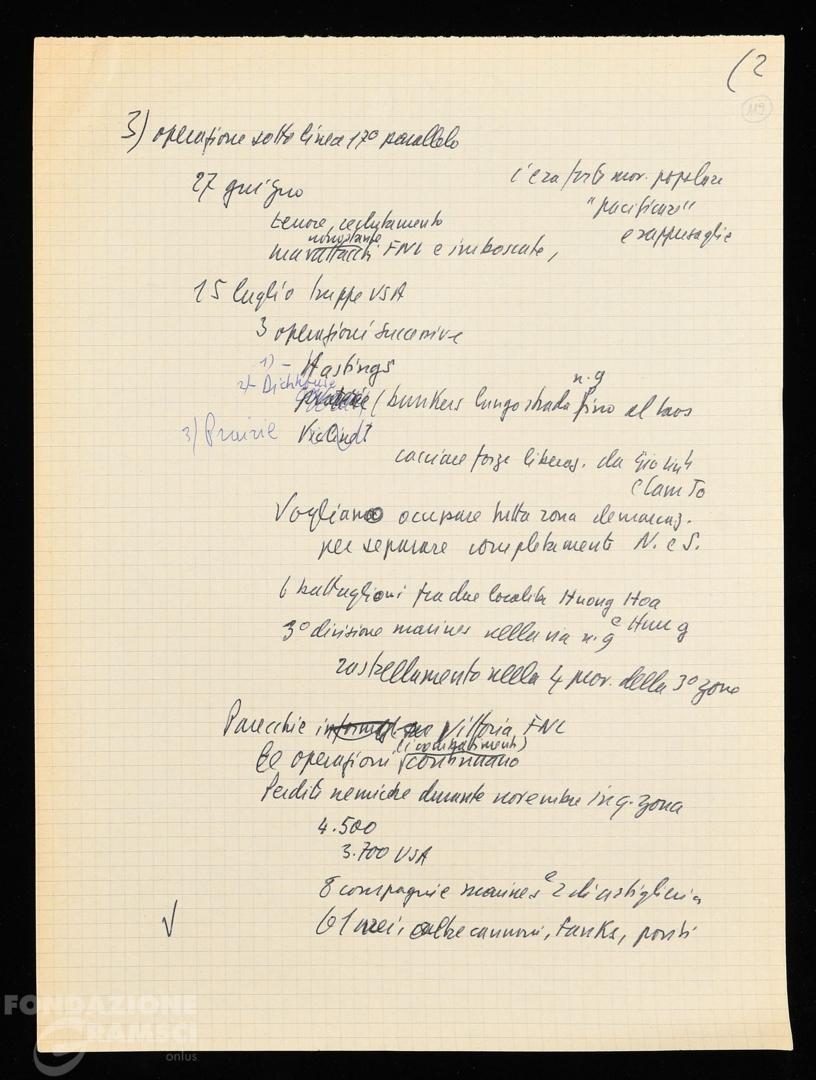 (2
119
3) operazione sotto linea 17º parallelo
27 giugno
c'era forte mov. popolare
"pacificare"
e rappresaglie
terrore, reclutamento
nonostante
ma attacchi FNL e imboscate,
15 luglio truppe USA
3 operazioni successive
1) - Hastings
2) -
n. 9
(bunkers lungo strada fino al Laos
3) Prairie
cacciare forze liberaz. da Gio Linh
e Cam Lo
Vogliono occupare tutta zona demarcaz.
per separare completamente N. e S.
6 battaglioni fra due località Huong Hoa
e Hung
3º divisione marines nella via n. 9
rastrellamento nella 4 prov. della 3º zona
Parecchie vittoria FNL
(i combattimenti)
Le operazioni continuano
Perdite nemiche durante novembre in q. zona
4.500
3.700 USA
8 compagnie marines e 2 di artiglieria
61 aerei, oltre cannoni, tanks, ponti
FONDAZIONE
GRAMSCI
onlus